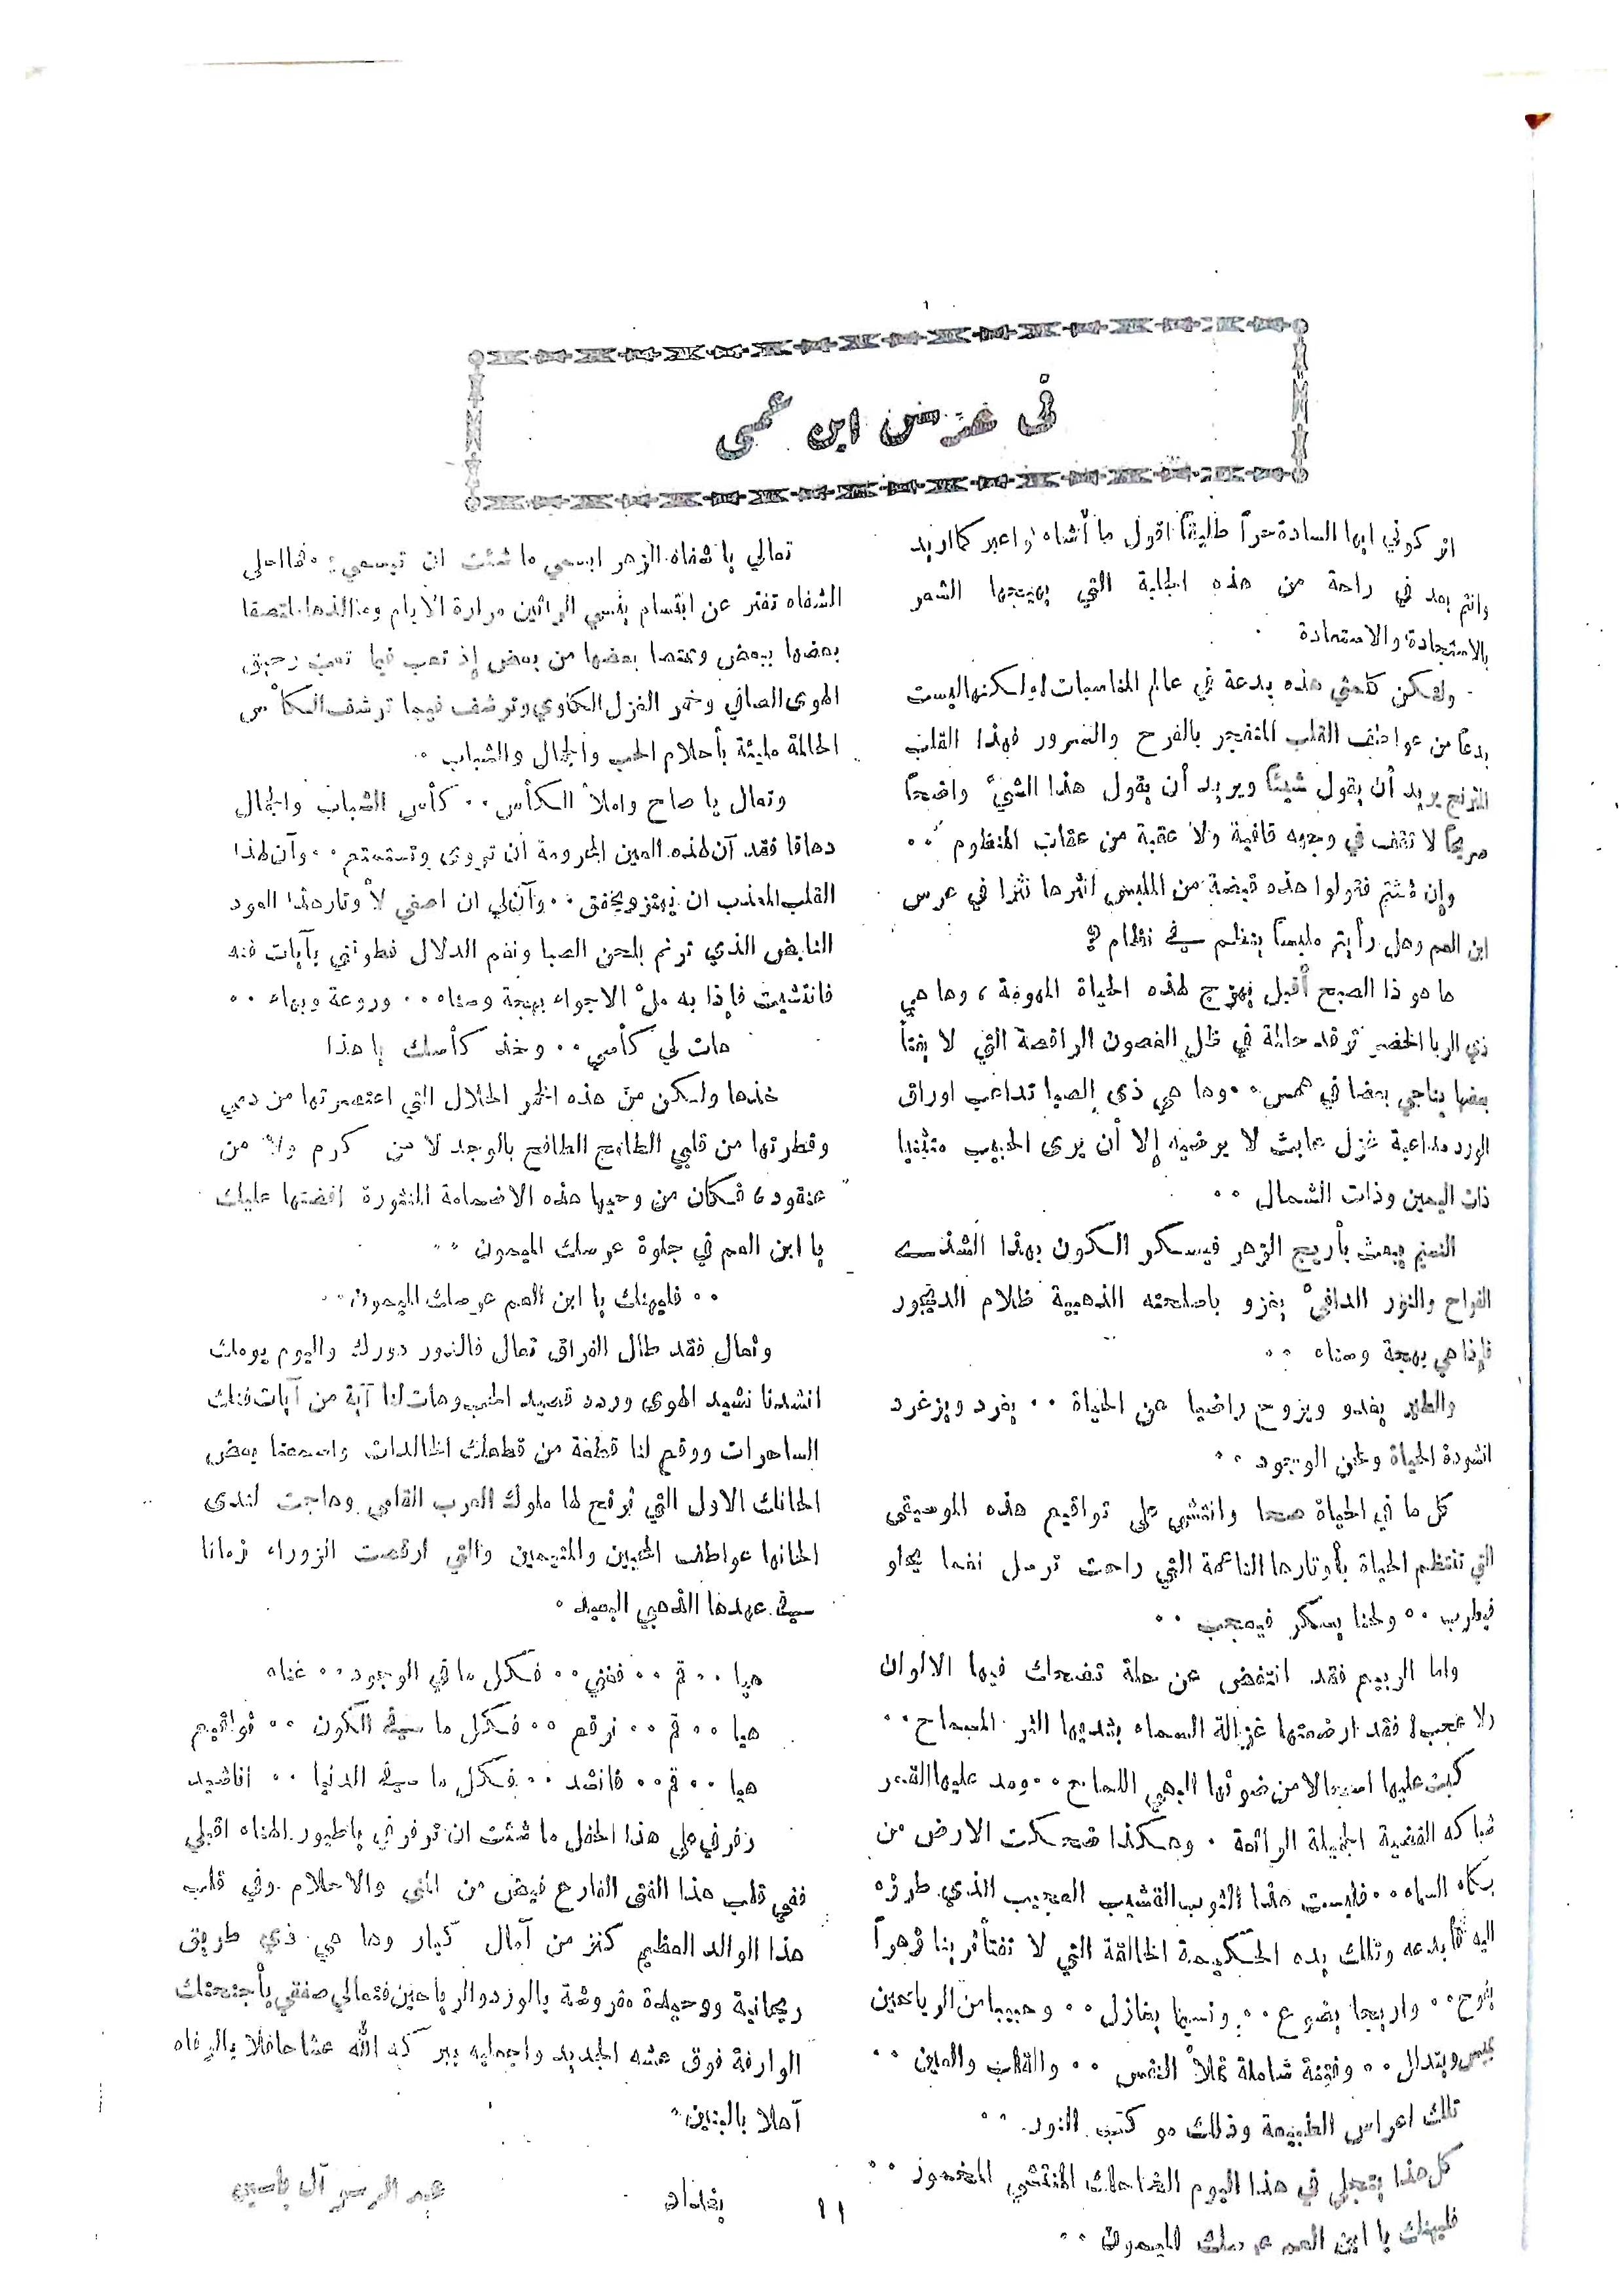 في عرس ابن عمي
اتركوني ايها السادة حراً طليقاً اقول ما أشاء واعبر كما اريد
وانتم بعد في راحة من هذه الجلبة التي يهيجها الشعر
بالاستجادة والاستعادة
ولتكن كلمتي هذه بدعة في عالم المناسبات ولكنها ليست
بدعاً من عواطف القلب المتفجر بالفرح والسرور فهذا القلب
المترنح يريد أن يقول شيئاً ويريد أن يقول هذا الشيء واضحاً
صريحاً لا تقف في وجهه قافية ولا عقبة من عقبات المنظوم ٠٠
وإن شئتم فقولوا هذه قبضة من الملبس انثرها نثرا في عرس
ابن العم وهل رأيتم ملبساً ينظم في نظام ؟
ها هو ذا الصبح أقبل يهزج لهذه الحياة الموفقة ، وها هي
ذي الربا الخضر ترقد حالمة في ظل الغصون الراقصة التي لا يفتأ
بعضها يناجي بعضا في همس ٠٠ وها هي ذي الصبا تداعب اوراق
الورد مداعبة غزل عابث لا يرضيه إلا أن يرى الحبيب متثنيا
ذات اليمين وذات الشمال ٠٠
النسيم يبعث بأريج الزهر فيسكر الكون بهذا الشذى
الفواح والنور الدافئ يغزو باسلحته الذهبية ظلام الديجور
فإذا هي بهجة وسناء ٠٠
والطير يغدو ويروح راضيا عن الحياة ٠٠ يغرد ويزغرد
انشودة الحياة ولحن الوجود ٠٠
كل ما في الحياة صحا وانتشى على تواقيع هذه الموسيقى
التي تنتظم الحياة بأوتارها الناعمة التي راحت ترسل نغما يحلو
فيطرب ٠٠ ولحنا يسكر فيعجب ٠٠
واما الربيع فقد انتفض عن حلة تضحك فيها الالوان
ولا عجب فقد ارضعتها غزالة السماء بثديها الثر المسماح ٠٠
كبت عليها اسجالا من ضوئها البهي اللماح ٠٠ ومد عليها القمر
شباكه الفضية الجميلة الرائعة ٠ وهكذا ضحكت الارض من
بكاء السماء ٠٠ فلبست هذا الثوب القشيب العجيب الذي طرزه
بدعه وتلك يده الحكيمة الخالقة التي لا تفتأ ترينا زهراً
يفوح ٠٠ واريجا يضوع ٠٠ ونسيما يغازل ٠٠ وحبيبا من الرياحين
يميس ويتدلل ٠٠ وفتنة شاملة تملأ النفس ٠٠ والقلب والعين ٠٠
تلك اعراس الطبيعة وذلك هو كتب النور ٠٠
كل هذا يتجلى في هذا اليوم الضاحك المنتشي المخمور ٠٠
فليهنك يا ابن العم عرسك الميمون ٠٠
تعالي يا شفاه الزهر ابسمي ما شئت ان تبسمي ؛ فما احلى
الشفاه تفتر عن ابتسام ينسي الرائين مرارة الايام وما الذها ملتصقا
بعضها ببعض وممتصا بعضها من بعض إذ تعب فيما تعب رحيق
الهوى الصافي وخمر الغزل الحكاوي وترشف فيما ترشف الكأس
الحالمة مليئة بأحلام الحب والجمال والشباب ٠
وتعال يا صاح واملأ الكأس ٠٠ كأس الشباب والجمال
دهاقا فقد آن لهذه العين المحرومة ان تروى وتستمتع ٠٠ وآن لهذا
القلب المعذب ان يهتز ويخفق ٠٠ وآن لي ان اصغي لأوتار هذا العود
النابض الذي ترنم بلحن الصبا ونغم الدلال فطوقني بآيات فنه
فانتشيت فإذا به ملء الاجواء بهجة وسناء ٠٠ وروعة وبهاء ٠٠
هات لي كأسي ٠٠ وخذ كأسك يا هذا
خذها ولكن من هذه الخمر الحلال التي اعتصرتها من دمي
وقطرتها من قلبي الطافح الطافح بالوجد لا من كرم ولا من
عنقود ، فكان من وحيها هذه الاضمامة المنثورة افضتها عليك
يا ابن العم في جلوة عرسك الميمون ٠٠
٠٠ فليهنك يا ابن العم عرسك الميمون ٠٠
وتعال فقد طال الفراق تعال فالدور دورك واليوم يومك
انشدنا نشيد الهوى وردد قصيد الحب وهات لنا آية من آيات فنك
الساحرات ووقع لنا قطعة من قطعك الخالدات واسمعنا بعض
الحانك الاول التي ترنح لها ملوك العرب القدامى وهاجت لدى
الحانها عواطف المحبين والمتيمين والتي ارقصت الزوراء زمانا
في عهدها الذهبي البعيد ٠
هيا ٠٠ قم ٠٠ فغني ٠٠ فكل ما في الوجود ٠٠ غناء
هيا ٠٠ قم ٠٠ نوقع ٠٠ فكل ما في الكون ٠٠ تواقيع
هيا ٠٠ قم ٠٠ فانشد ٠٠ فكل ما في الدنيا ٠٠ اناشيد
رفرفي على هذا الحفل ما شئت ان ترفرفي يا طيور الهناء اقبلي
ففي قلب هذا الفتى الفارع فيض من المنى والاحلام وفي قلب
هذا الوالد العظيم كنز من آمال كبار وها هي ذي طريق
ريحانية ووحيدة مفروشة بالورد والرياحين فتعالي صفقي بأجنحتك
الوارفة فوق عشه الجديد واجعليه ببركة الله عشا حافلا بالرفاه
آهلا بالبنين ٠
بغداد
آل ياسين
١١